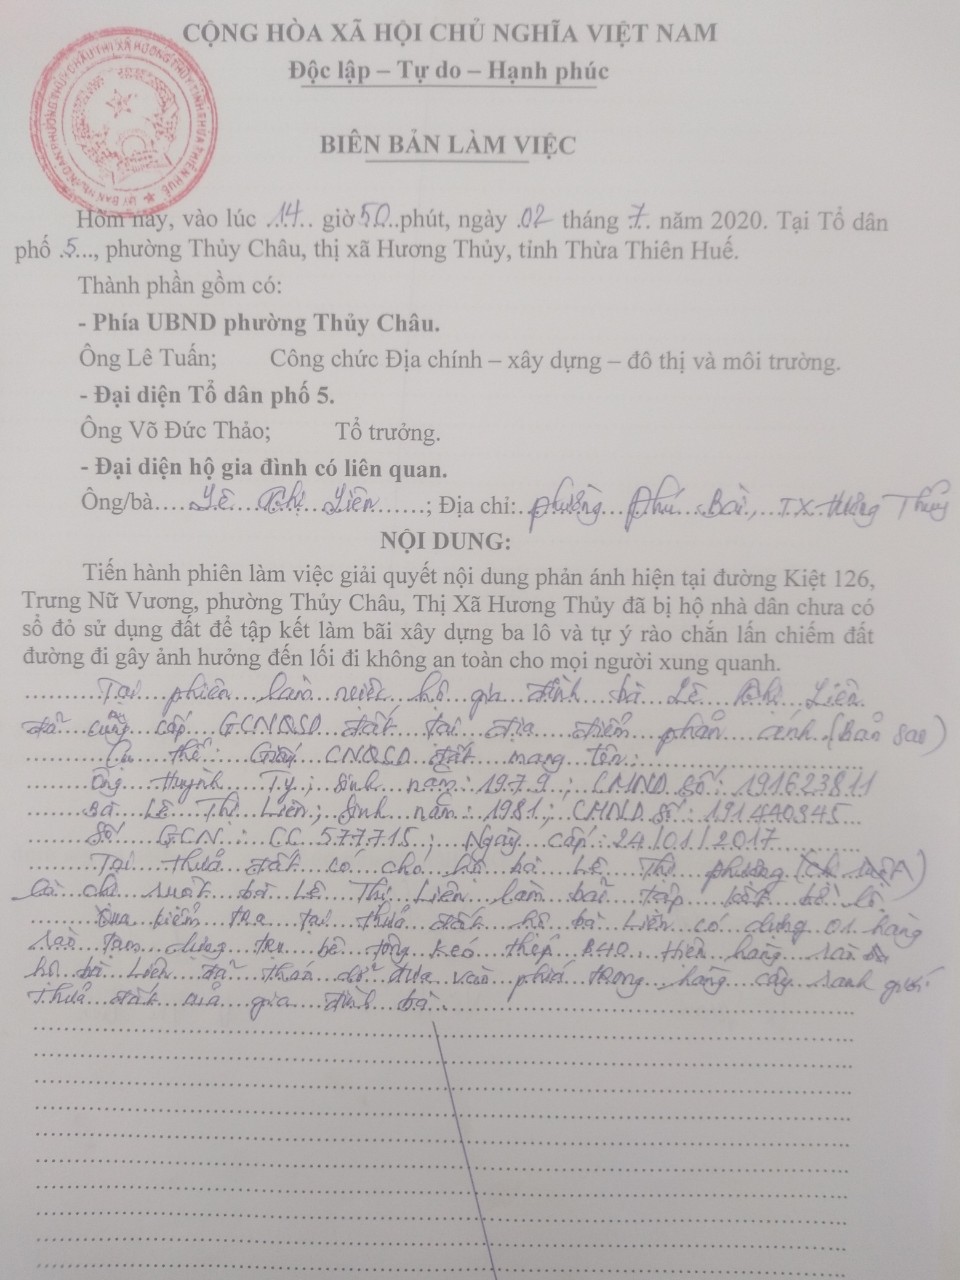 CỘNG HÒA XÃ HỘI CHỦ NGHĨA VIỆT NAM
Độc lập – Tự do – Hạnh phúc
BIÊN BẢN LÀM VIỆC
Hôm nay, vào lúc .14.. giờ 50..phút, ngày .02 tháng .7. năm 2020. Tại Tổ dân
phố .5..., phường Thủy Châu, thị xã Hương Thủy, tỉnh Thừa Thiên Huế.
Thành phần gồm có:
- Phía UBND phường Thủy Châu.
Ông Lê Tuấn; Công chức Địa chính – xây dựng – đô thị và môi trường.
- Đại diện Tổ dân phố 5.
Ông Võ Đức Thảo; Tổ trưởng.
- Đại diện hộ gia đình có liên quan.
Ông/bà....Lê...Thị...Liên.......; Địa chỉ:..phường...Phú..Bài,..TX.Hương Thủy
NỘI DUNG:
Tiến hành phiên làm việc giải quyết nội dung phản ánh hiện tại đường Kiệt 126,
Trưng Nữ Vương, phường Thủy Châu, Thị Xã Hương Thủy đã bị hộ nhà dân chưa có
sổ đỏ sử dụng đất để tập kết làm bãi xây dựng ba lô và tự ý rào chắn lấn chiếm đất
đường đi gây ảnh hưởng đến lối đi không an toàn cho mọi người xung quanh.
Tại phiên làm việc hộ gia đình bà Lê Thị Liên
đã cung cấp GCNQSD đất tại địa điểm phản ánh (Bản sao)
Cụ thể: Giấy CNQSD đất mang tên:
Ông Huỳnh Ty; sinh năm: 1979; CMND số: 191623811
Bà Lê Thị Liên; sinh năm: 1981; CMND số:
Số GCN: CC 577715; Ngày cấp: 24/01/2017
Tại thửa đất có cho hộ bà Lê Thị Phương
là chị ruột bà Lê Thị Liên làm bãi tập kết bờ lô
Qua kiểm tra tại thửa đất hộ bà Liên có dựng 01 hàng
rào tạm dùng trụ bê tông kéo thép B40. Hiện hàng rào
hộ bà Liên đã tháo dỡ đưa vào phía trong hàng cây ranh giới
thửa đất mà gia đình bà